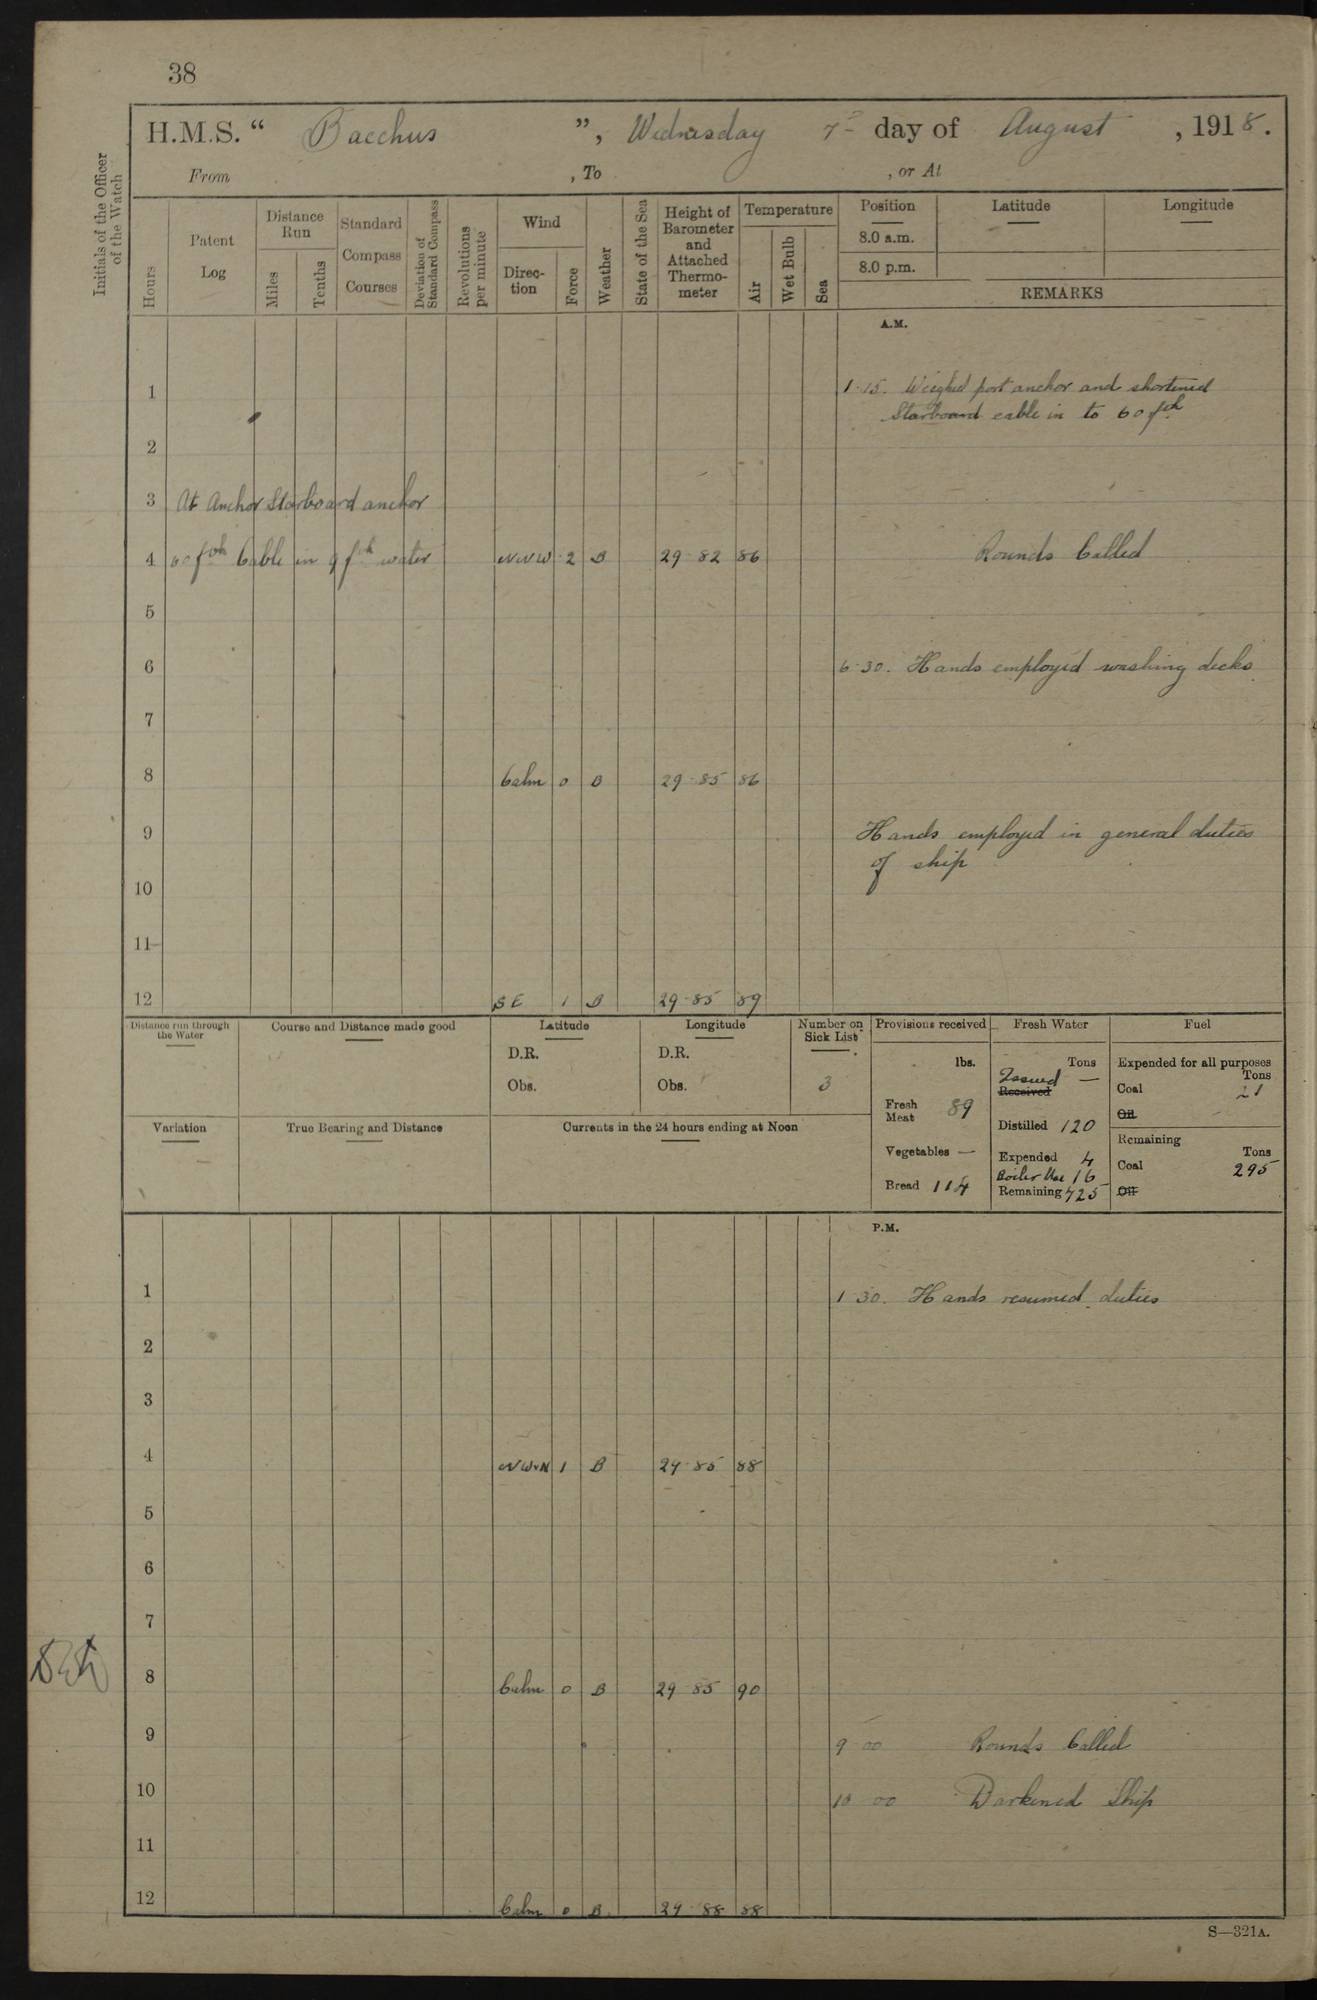 38
H.M.S. “ Bacchus ”, Wednesday 7th day of August , 1918.
From , To , or At
Initials of the Officer of the Watch
Hours
Patent Log
Distance Run
Miles
Tenths
Standard Compass Courses
Deviation of Standard Compass
Revolutions per minute
Wind
Direc-tion
Force
Weather
State of the Sea
Height of Barometer and Attached Thermo-meter
Temperature
Air
Wet Bulb
Sea
Position Latitude Longitude
8.0 a.m.
8.0 p.m.
REMARKS
A.M.
1 1·15. Weighed port anchor and shortened
Starboard cable in to 60 fth
2
3 At Anchor Starboard anchor
4 60 fth Cable in 9 fth water NNW 2 B 29·82 86 Rounds Called
5
6 6·30. Hands employed washing decks
7
8 Calm 0 B 29·85 86
9 Hands employed in general duties
of ship
10
11
12 SE 1 B 29·85 89
Distance run through the Water
Course and Distance made good
Latitude
D.R.
Obs.
Longitude
D.R.
Obs.
Number on Sick List
3
Provisions received
lbs.
Fresh Meat 89
Vegetables —
Bread 114
Fresh Water
Tons
Issued —
Received
Distilled 120
Expended 4
Boiler Use 16
Remaining 425
Fuel
Expended for all purposes
Tons
Coal 21
Oil
Remaining
Tons
Coal 295
Oil
Variation
True Bearing and Distance
Currents in the 24 hours ending at Noon
P.M.
1 1·30. Hands resumed duties
2
3
4 NWxN 1 B 29·85 88
5
6
7
8 Calm 0 B 29·85 90
9 9·00 Rounds Called
10 10·00 Darkened Ship
11
12 Calm 0 B. 29·88 88
S—321A.